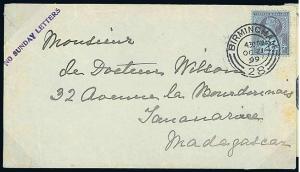 NO SUNDAY LETTERS
BIRMINGHAM
99
28
Monsieur
le Docteur Wilson
32 Avenue la Bourdonnais
Tananarive
Madagascar